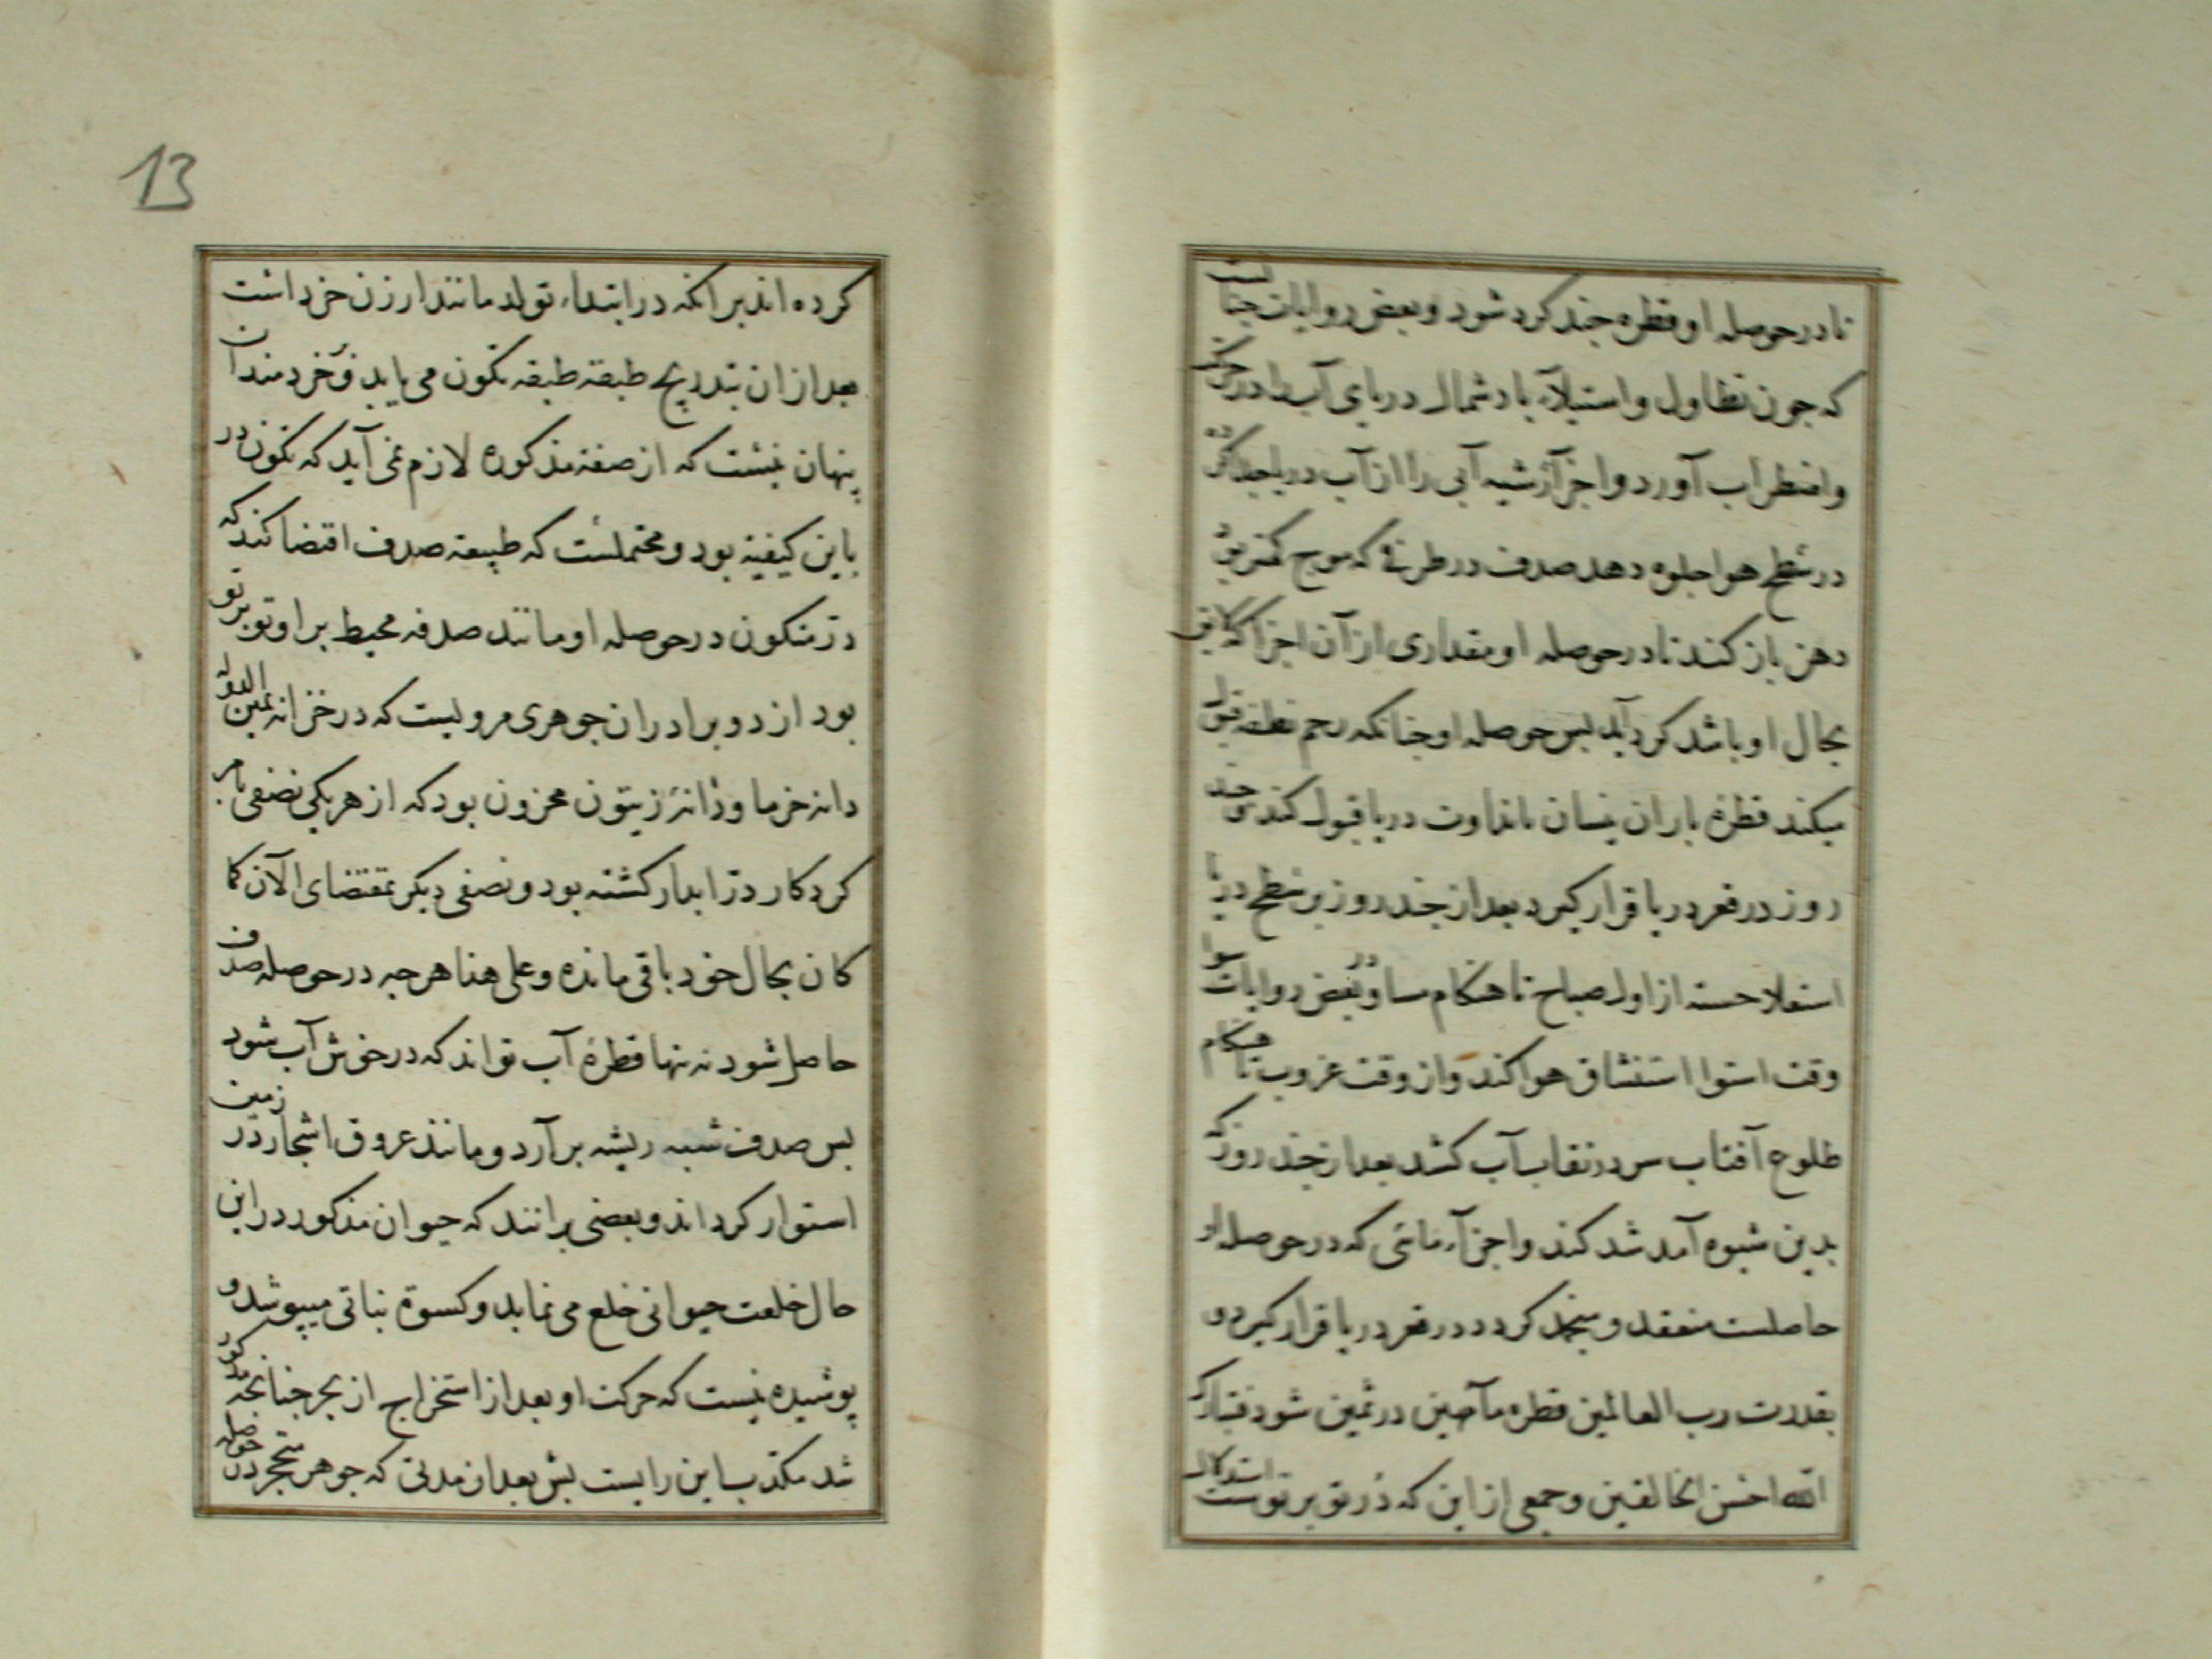 تا در حوصله او قطره چند کرد شود و بعض روایات چنانست
که جون تطاول و استیلآء باد شمال دریای آب را در حرکت
و اضطراب آورد و اجزآء رشیه آبی را از آب دریا جدا کرده
در سطح هوا جلوه دهد صدف در طرفی که موج کمتر بود
دهن باز کند تا در حوصله او مقداری از آن اجزا که لایق
بحال او باشد کرد آید بس حوصله او جنانکه رحم نطفه قبول
میکند قطرهٔ باران نیسان با نداوت دریا قبول کند و جند
روز در قعر دریا قرار کیرد بعد از جند روز بر سطح دریا
استعلا جسته از اول صباح تا هنکام مسا و در بعض روایات
وقت استوا استنشاق هوا کند و از وقت غروب تا هنکام
طلوع آفتاب سر در نقاب آب کشد بعد از جند روز که
بدین شیوه آمد شد کند و اجزآء مائی که در حوصله او
حاصلست منعقد و منجمد کردد در قعر دریا قرار کیرد و
بقدرت رب العالمین قطره مآء مهین در ثمین شود فتبارک
الله احسن الخالقین و جمعی از این که در تو بر توست استدلال
13
کرده اند برانکه در ابتداء تولد مانند ارزن خرد است
بعد از ان بتدریج طبقه طبقه تکون می یابد و بر خردمندان
پنهان نیست که از صفة مذکوره لازم نمی آید که تکون در
باین کیفیة بود و محتملست که طبیعة صدف اقتضا کند که
در متکون در حوصله او مانند صدفه محیط بر او تو بر تو
بود از دو برادران جوهری مرویست که در خزانه یمین الدوله
دانه خرما و دانهٔ زیتون مخزون بود که از هر یکی نصفی بامر
کردکار در ابدار کشته بود و نصفی دیکر بمقتضای الآن کما
کان بحال خود باقی مانده و علی هذا هر جه در حوصله صدف
حاصل شود نه تنها قطرهٔ آب تواند که در خوش آب شود
بس صدف شبیه ریشه بر آرد و مانند عروق اشجار در زمین
استوار کرداند و بعضی برانند که حیوان مذکور در این
حال خلعت حیوانی خلع می نماید و کسوة نباتی میپوشد و
پوشیده نیست که حرکت او بعد از استخراج از بحر جنانجه مذکور
شد مکذب این رایست بس بعد از مدتی که جوهر متحجر در حوصله